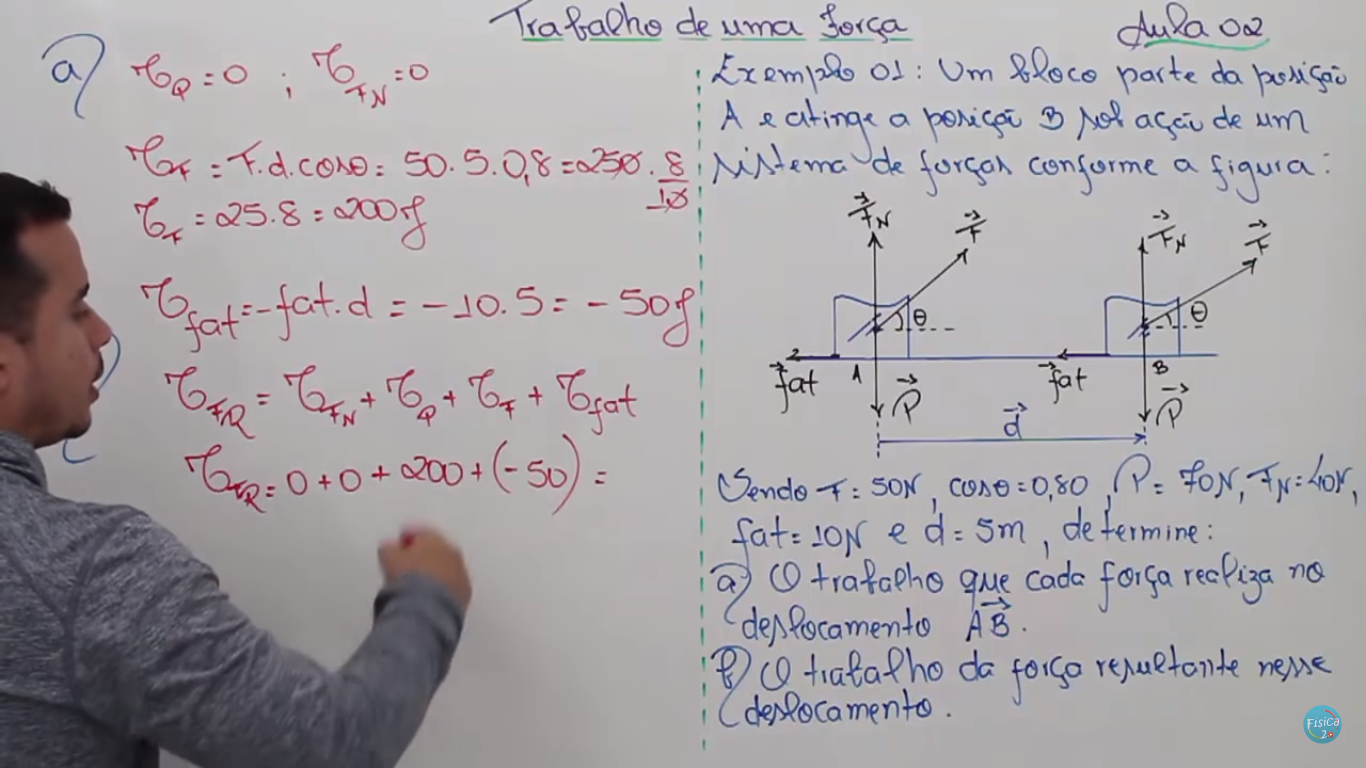 Trabalho de uma Força
Aula 02
a) τP = 0 ; τFN = 0
τF = F.d.cosθ = 50.5.0,8 = 250.8/10
τF = 25.8 = 200J
τfat = -fat.d = -10.5 = -50J
τFR = τFN + τP + τF + τfat
τFR = 0 + 0 + 200 + (-50) =
Exemplo 01: Um bloco parte da posição
A e atinge a posição B sob ação de um
sistema de forças conforme a figura:
FN F FN F
θ θ
fat A P fat B P
d
Sendo F = 50N, cosθ = 0,80, P = 70N, FN = 40N,
fat = 10N e d = 5m, determine:
a) O trabalho que cada força realiza no
deslocamento AB.
b) O trabalho da força resultante nesse
deslocamento.
Física
2.0